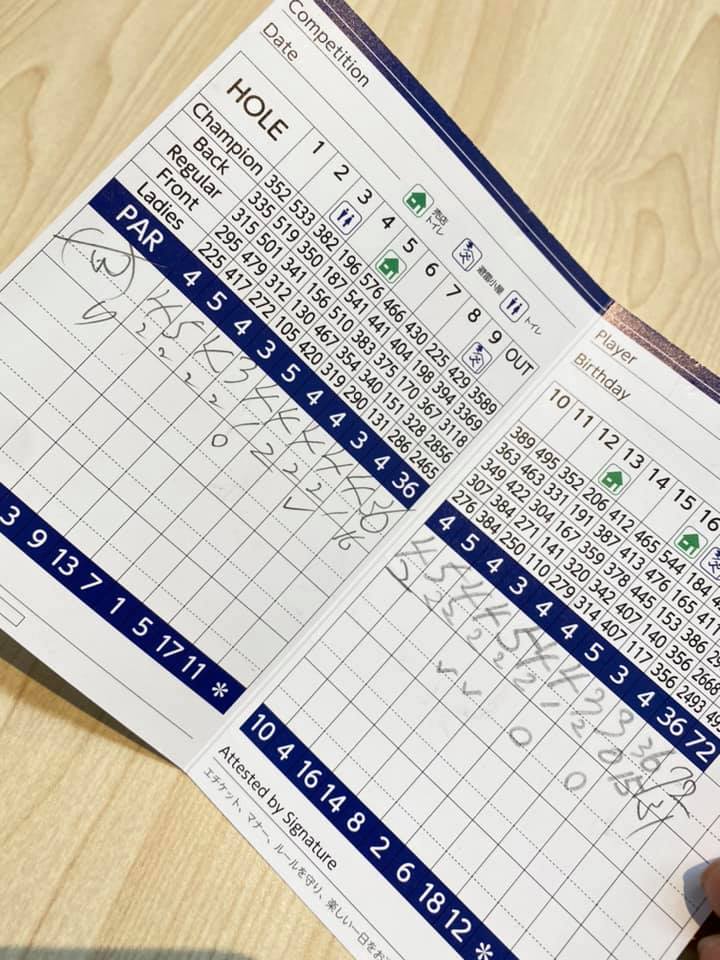 Competition
Date
売店
トイレ
避雷小屋
トイレ
HOLE 1 2 3 4 5 6 7 8 9 OUT
Champion 352 533 382 196 576 466 430 225 429 3589
Back 335 519 350 187 541 441 404 198 394 3369
Regular 315 501 341 156 510 383 375 170 367 3118
Front 295 479 312 130 467 354 340 151 328 2856
Ladies 225 417 272 105 420 319 290 131 286 2465
PAR 4 5 4 3 5 4 4 3 4 36
4 5 4 3 4 4 4 4 4 36
2 2 2 2 1 2 2 2 1 16
0 ✓
3 9 13 7 1 5 17 11 *
Player
Birthday
10 11 12 13 14 15 16
389 495 352 206 412 465 544 184
363 463 331 191 387 413 476 165
349 422 304 167 359 378 445 153 386
307 384 271 141 320 342 407 140 356 2668
276 384 250 110 279 314 407 117 356 2493
4 5 4 3 4 4 5 3 4 36 72
4 5 4 4 5 4 4 3 3 36 72
2 2 2 2 2 2 1 2 0 15 (31)
✓ ✓ 0 0
10 4 16 14 8 2 6 18 12 *
Attested by Signature
エチケット、マナー、ルールを守り、楽しい一日をお